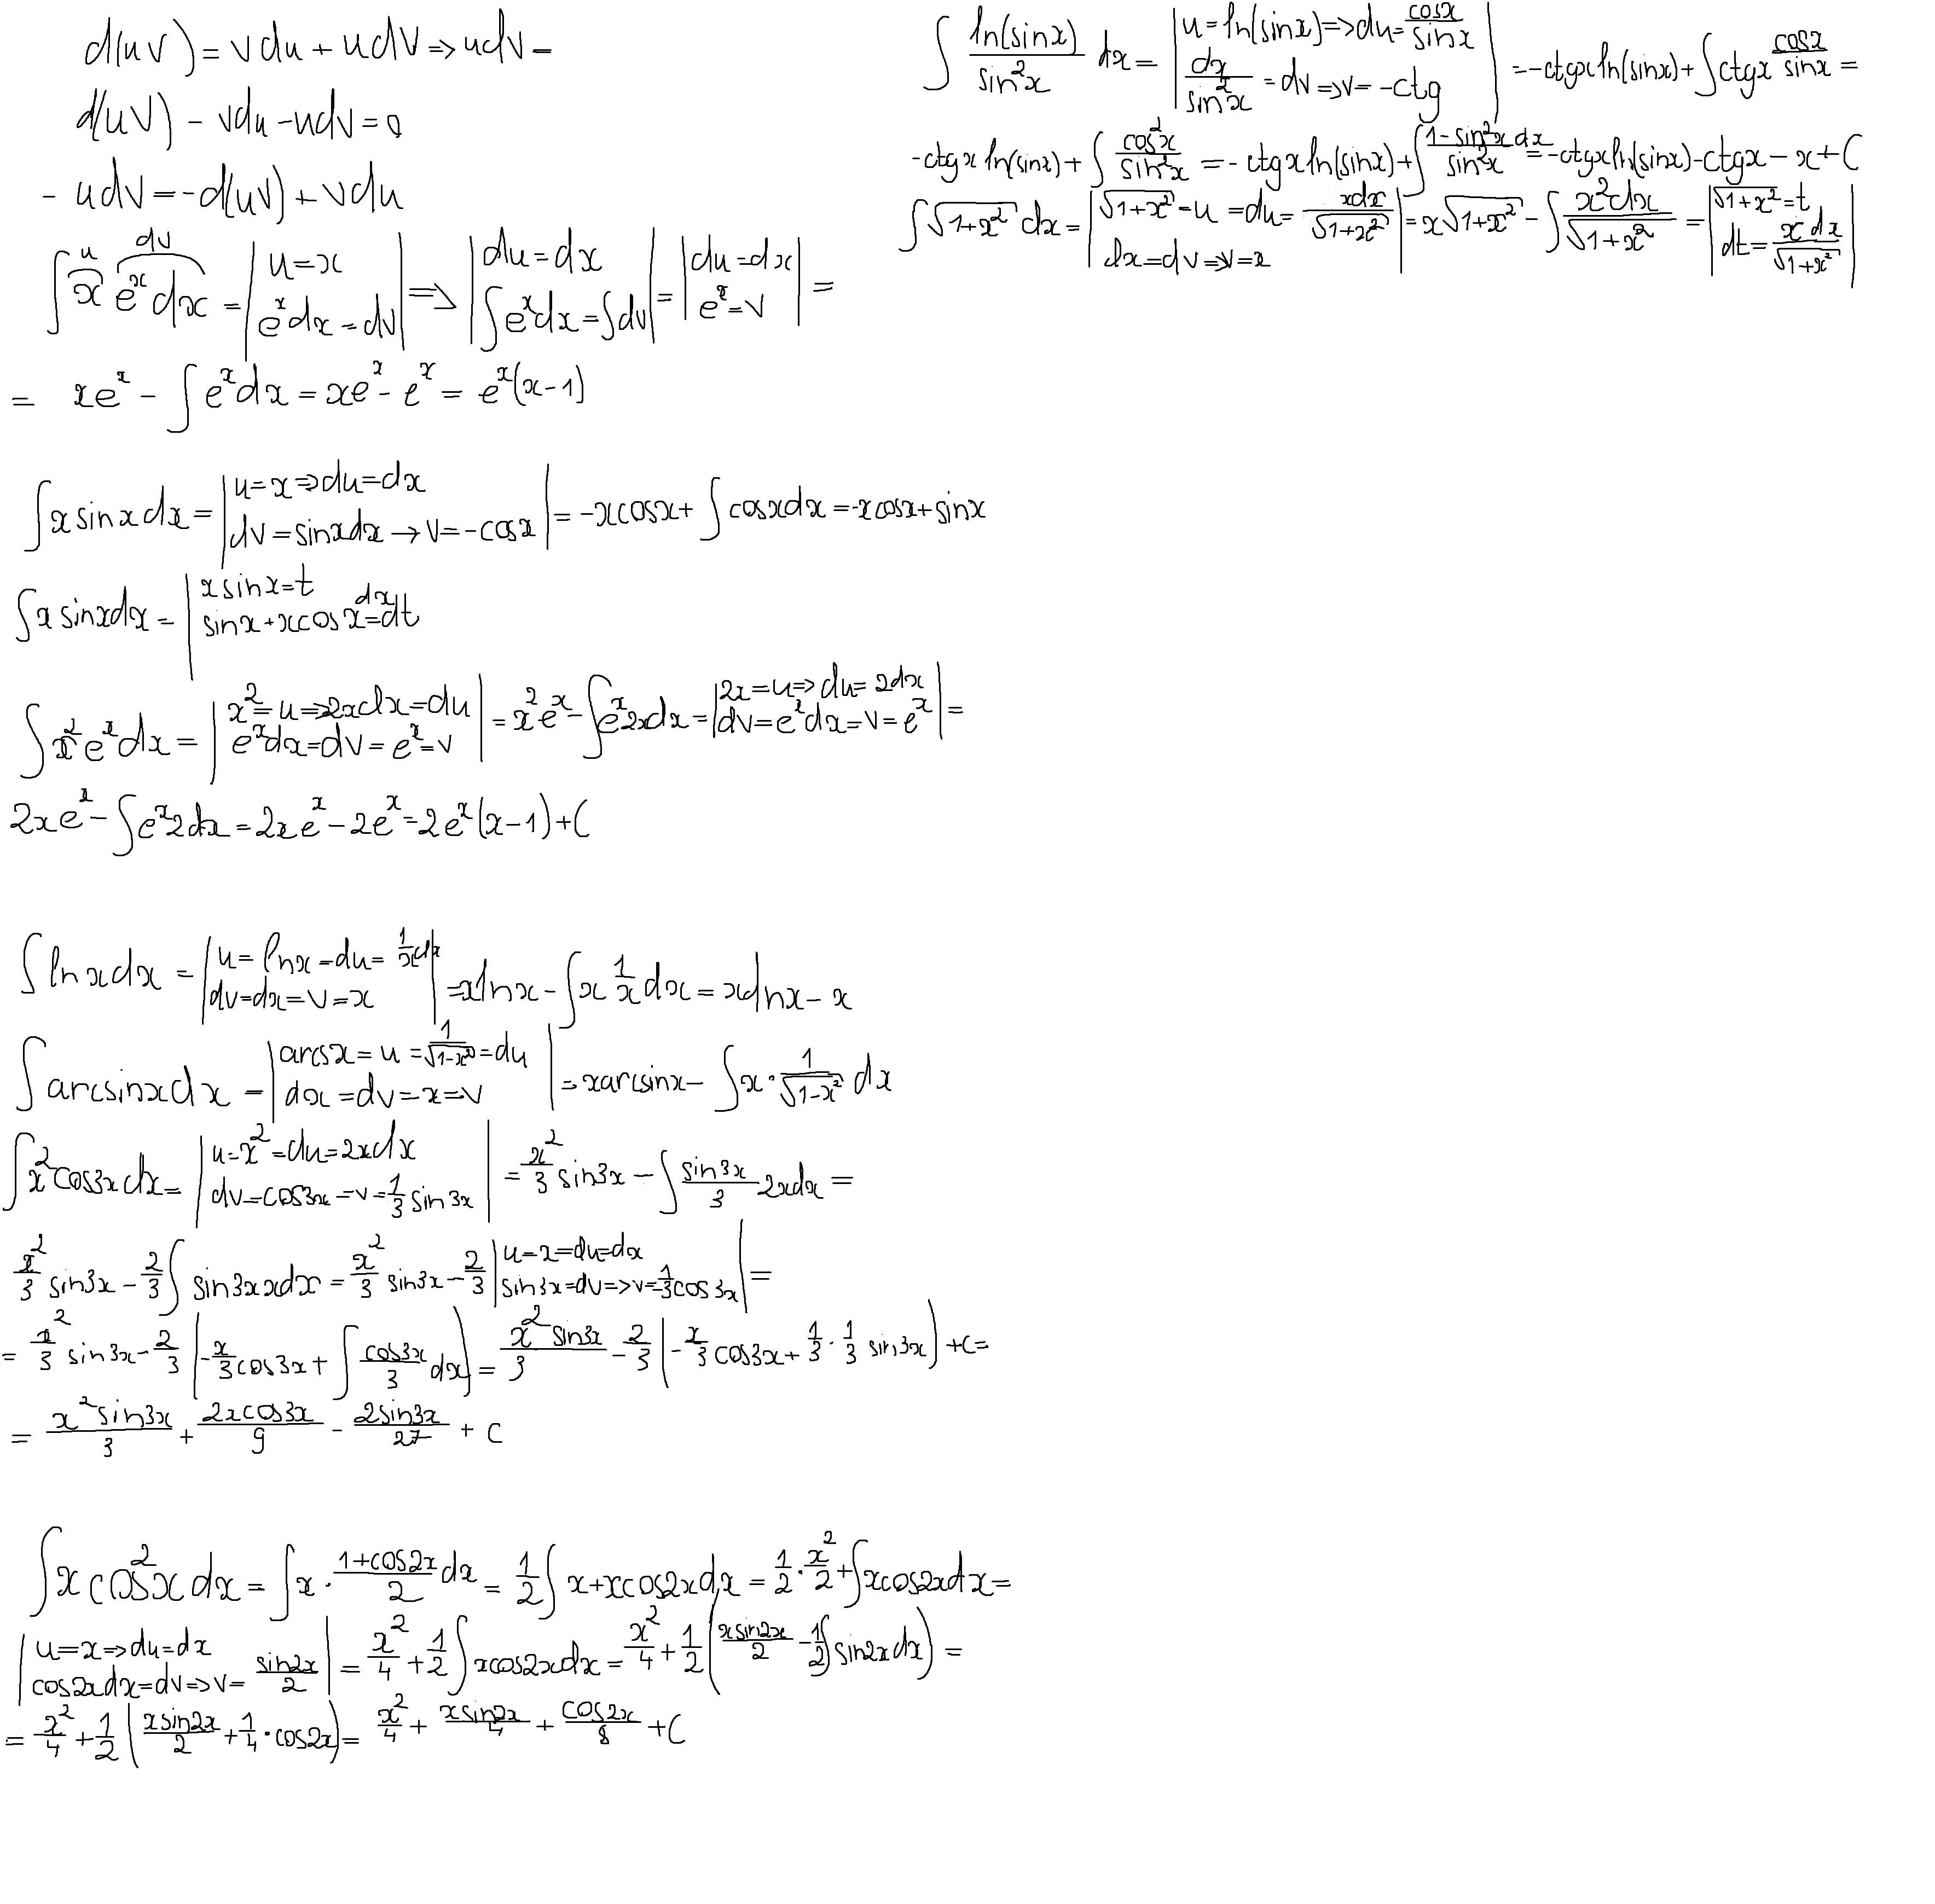 d(uv) = vdu + udv => udv -
d(uv) - vdu - udv = 0
- udv = -d(uv) + vdu
u dv
∫ x e^x dx = | u = x ; e^x dx = dv | => | du = dx ; ∫e^x dx = ∫dv | = | du = dx ; e^x = v | =
= xe^x - ∫ e^x dx = xe^x - e^x = e^x(x-1)
∫ x sin x dx = | u = x => du = dx ; dv = sinx dx → v = -cosx | = -xcosx + ∫ cosx dx = -xcosx + sinx
∫ x sinx dx = | x sinx = t ; sinx + xcosx dx = dt
∫ x^2 e^x dx = | x^2 = u => 2xdx = du ; e^x dx = dv = e^x = v | = x^2 e^x - ∫e^x 2xdx = | 2x = u => du = 2dx ; dv = e^x dx = v = e^x | =
2xe^x - ∫ e^x 2dx = 2xe^x - 2e^x = 2e^x(x-1) + C
∫ lnx dx = | u = lnx = du = 1/x dx ; dv = dx = v = x | = xlnx - ∫x 1/x dx = xlnx - x
∫ arcsinx dx = | arcsx = u = 1/√(1-x^2) = du ; dx = dv = x = v | = xarcsinx - ∫x · 1/√(1-x^2) dx
∫ x^2 cos3x dx = | u = x^2 = du = 2xdx ; dv = cos3x = v = 1/3 sin3x | = x^2/3 sin3x - ∫ sin3x/3 2xdx =
x^2/3 sin3x - 2/3 ∫ sin3x xdx = x^2/3 sin3x - 2/3 | u = x = du = dx ; sin3x = dv => v = -1/3 cos3x | =
= x^2/3 sin3x - 2/3 (-x/3 cos3x + ∫ cos3x/3 dx) = x^2 sin3x/3 - 2/3 (-x/3 cos3x + 1/3 · 1/3 sin3x) + C =
= x^2 sin3x/3 + 2xcos3x/9 - 2sin3x/27 + C
∫ x cos^2 x dx = ∫ x · (1+cos2x)/2 dx = 1/2 ∫ x + xcos2x dx = 1/2 · x^2/2 + ∫xcos2xdx =
| u = x => du = dx ; cos2xdx = dv => v = sin2x/2 | = x^2/4 + 1/2 ∫ xcos2xdx = x^2/4 + 1/2 (xsin2x/2 - 1/2 ∫ sin2xdx) =
= x^2/4 + 1/2 (xsin2x/2 + 1/4 · cos2x) = x^2/4 + xsin2x/4 + cos2x/8 + C
∫ ln(sinx)/sin^2x dx = | u = ln(sinx) => du = cosx/sinx ; dx/sin^2x = dv => v = -ctg | = -ctgx ln(sinx) + ∫ctgx cosx/sinx =
-ctgx ln(sinx) + ∫ cos^2x/sin^2x = -ctgx ln(sinx) + ∫ (1-sin^2x dx)/sin^2x = -ctgxln(sinx) - ctgx - x + C
∫ √(1+x^2) dx = | √(1+x^2) = u = du = xdx/√(1+x^2) ; dx = dv => v = x | = x√(1+x^2) - ∫ x^2dx/√(1+x^2) = | √(1+x^2) = t ; dt = x dx/√(1+x^2) |